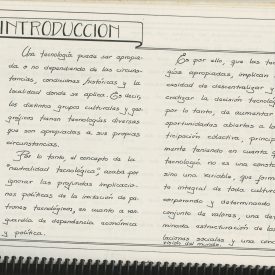 INTRODUCCION
Una tecnología puede ser apropia-
da o no dependiendo de las circuns-
tancias, condiciones históricas y la
localidad donde se aplica. Es decir,
los distintos grupos culturales y geo-
gráficos tienen tecnologías diversas
que son apropiadas a sus propias
circunstancias.
Por lo tanto, el concepto de la
"neutralidad tecnológica", acaba por
ignorar las profundas implicacio-
nes políticas de la imitación de pa-
trones tecnológicos, en cuanto a
de dependencia económica
y política.
Es por ello, que las tec
gías apropiadas, implican
esidad de descentralizar y
cratizar la decisión tecnoló
por lo tanto, de aumentar
oportunidades abiertas a la
ticipación colectiva, princip
mente teniendo en cuenta q
tecnología no es una const
sino una variable, que form
te integral de toda cultur
corporando y determinando
conjunto de valores, una de
minada estructuración de las
laciones sociales y una conc
visión del mundo.